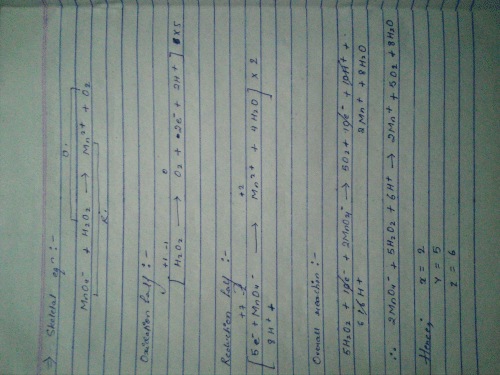 ⇒ Skeletal eqn :-
O.
MnO4⁻ + H2O2 → Mn²⁺ + O2
R.
Oxidation half :-
+1 -1 0
[ H2O2 → O2 + 2e⁻ + 2H⁺ ] × 5
Reduction half :-
+7 -2 +2
[ 5e⁻ + MnO4⁻ → Mn²⁺ + 4H2O ] × 2
8H⁺ +
Overall reaction :-
5H2O2 + 10e⁻ + 2MnO4⁻ → 5O2 + 10e⁻ + 10H⁺ +
6 16H⁺ 2Mn⁺ + 8H2O
∴ 2MnO4⁻ + 5H2O2 + 6H⁺ → 2Mn⁺ + 5O2 + 8H2O
Hence,
x = 2
y = 5
z = 6